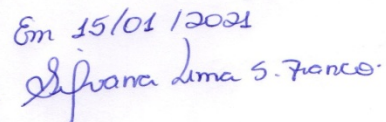 Em 15/01/2021
Silvana Lima S. Franco.